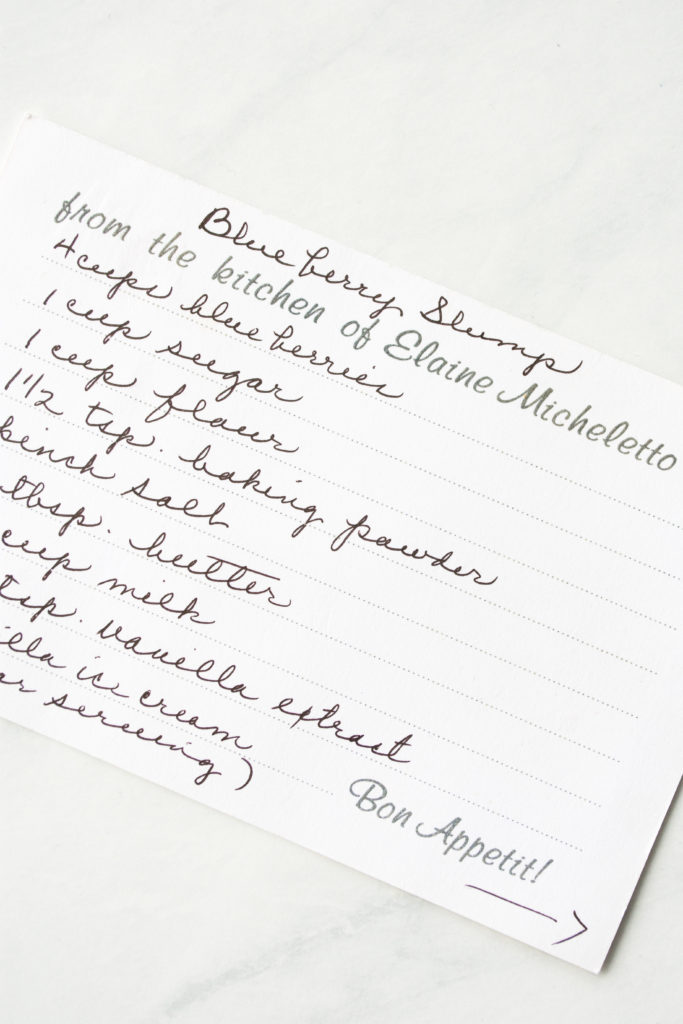 Blueberry Slump
from the kitchen of Elaine Micheletto
4 cups blueberries
1 cup sugar
1 cup flour
1 1/2 tsp. baking powder
pinch salt
tbsp. butter
cup milk
tsp. vanilla extract
illa ice cream
or serving)
Bon Appetit!